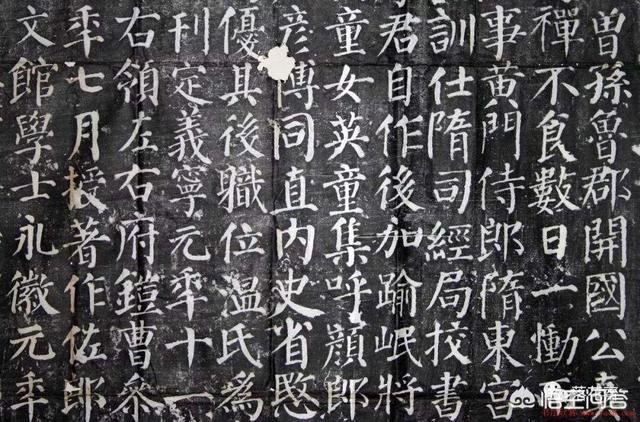 曾孫魯郡開國公
禪不食數日一慟
事黃門侍郎隋東宮
訓仕隋司經局挍書
君自作後加踰岷將
童女英童集呼顏郎
彥博同直內史省愍
優其後職位溫氏為
刊定義寧元秊十一
右領左右府鎧曹參
秊七月授著作佐郎
文館學士永徽元秊